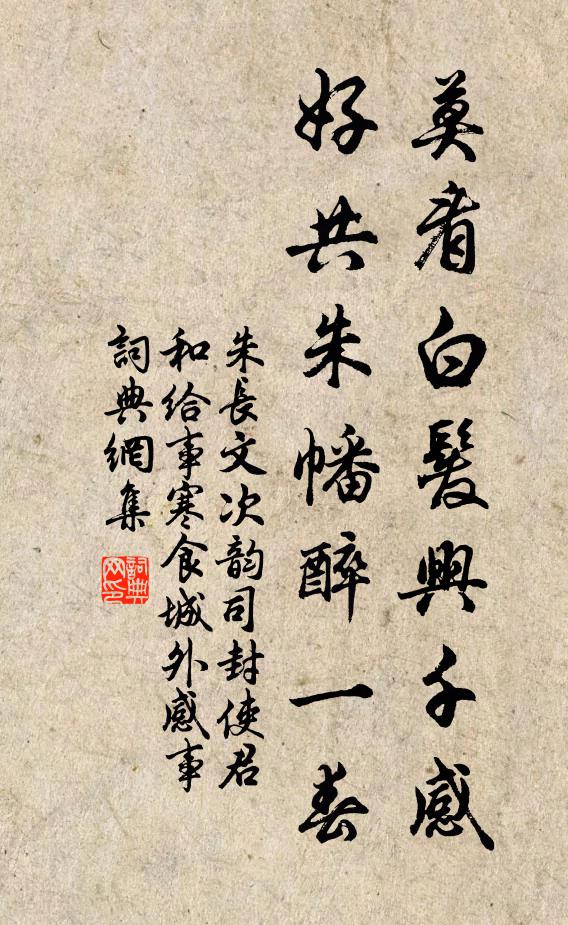 莫看白髮興千感
好共朱幡醉一春
朱長文次韵司封使君
和給事寒食城外感事
詞典網集
詞典
网印